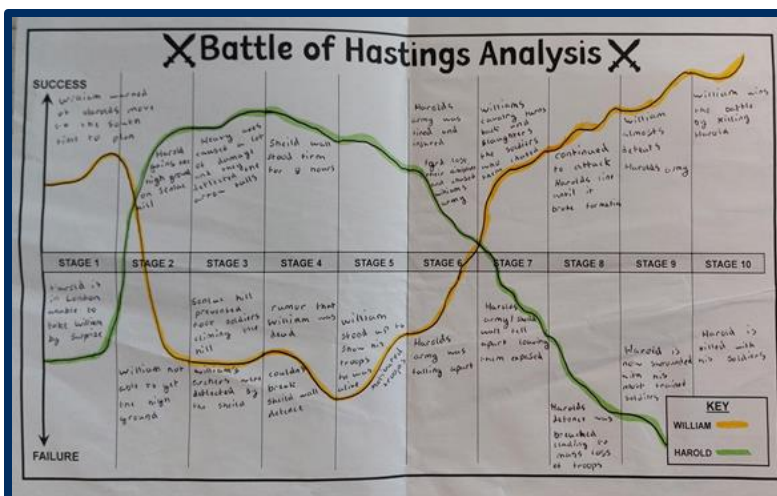 Battle of Hastings Analysis
SUCCESS
William warned
of Harolds move
to the South
time to plan
Harold
gains the
high ground
on Senlac
hill
Heavy axes
caused a lot
of damage
and easily
deflected
arrow
Sheild wall
stood firm
for 8 hours
Harolds
army was
tired and
injured
fyrd lose
their
and chased
williams
army
williams
cavalry turns
back and
slaughters
the soldiers
who chased
them
continued
to attack
Harolds line
until it
broke formation
William
almosts
defeats
Harolds army
William wins
the battle
by killing
Harold
STAGE 1
STAGE 2
STAGE 3
STAGE 4
STAGE 5
STAGE 6
STAGE 7
STAGE 8
STAGE 9
STAGE 10
Harold is
in London
unable to
take William
by Surprise
William not
able to get
the high
ground
Senlac hill
prevented
soldiers
climing the
hill
William's
archers were
deflected by
the sheild
rumor that
William was
dead
couldnt
break
sheild wall
defence
William
stood up to
show his
troops
he was
alive
troops
Harolds
army was
falling apart
Harolds
army/sheild
wall fell
apart leaving
them exposed
Harolds
defence was
breached
leading to
mass loss
of troops
Harold is
now surrounded
with his
most trained
soldiers
Harold is
killed with
his soldiers
FAILURE
KEY
WILLIAM
HAROLD